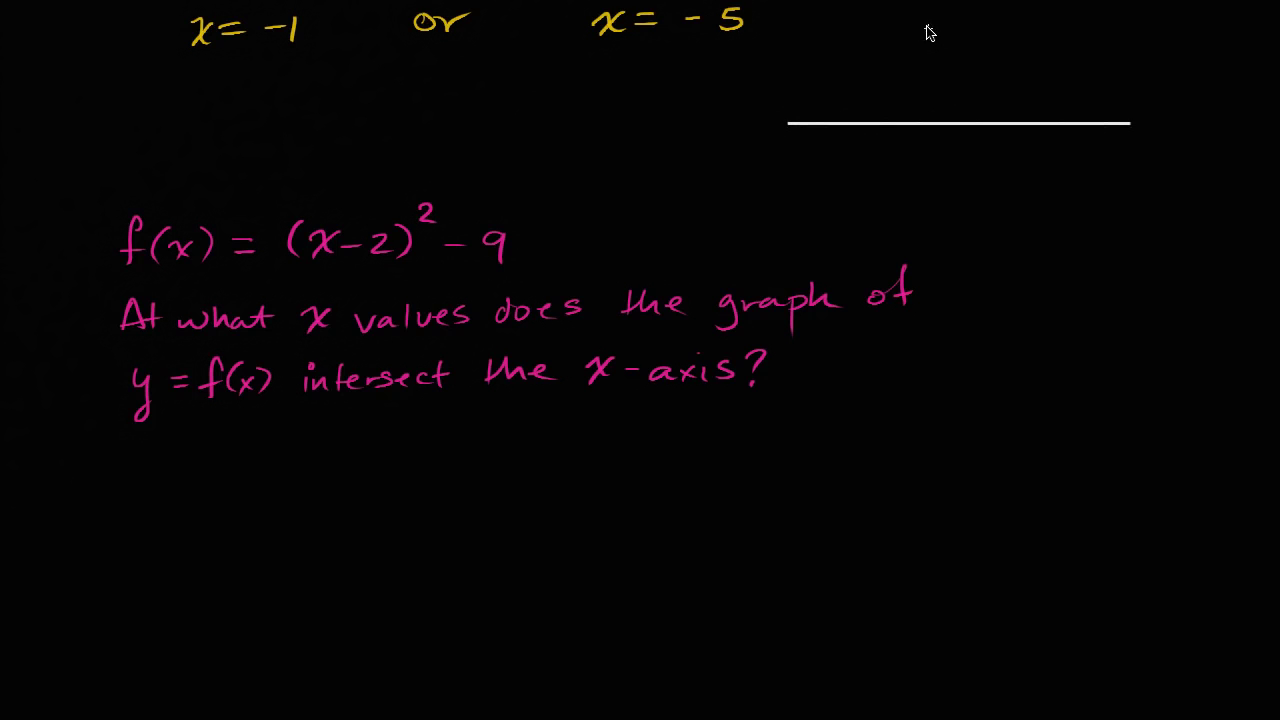 x = -1 or x = -5
f(x) = (x-2)² - 9
At what x values does the graph of
y = f(x) intersect the x-axis?